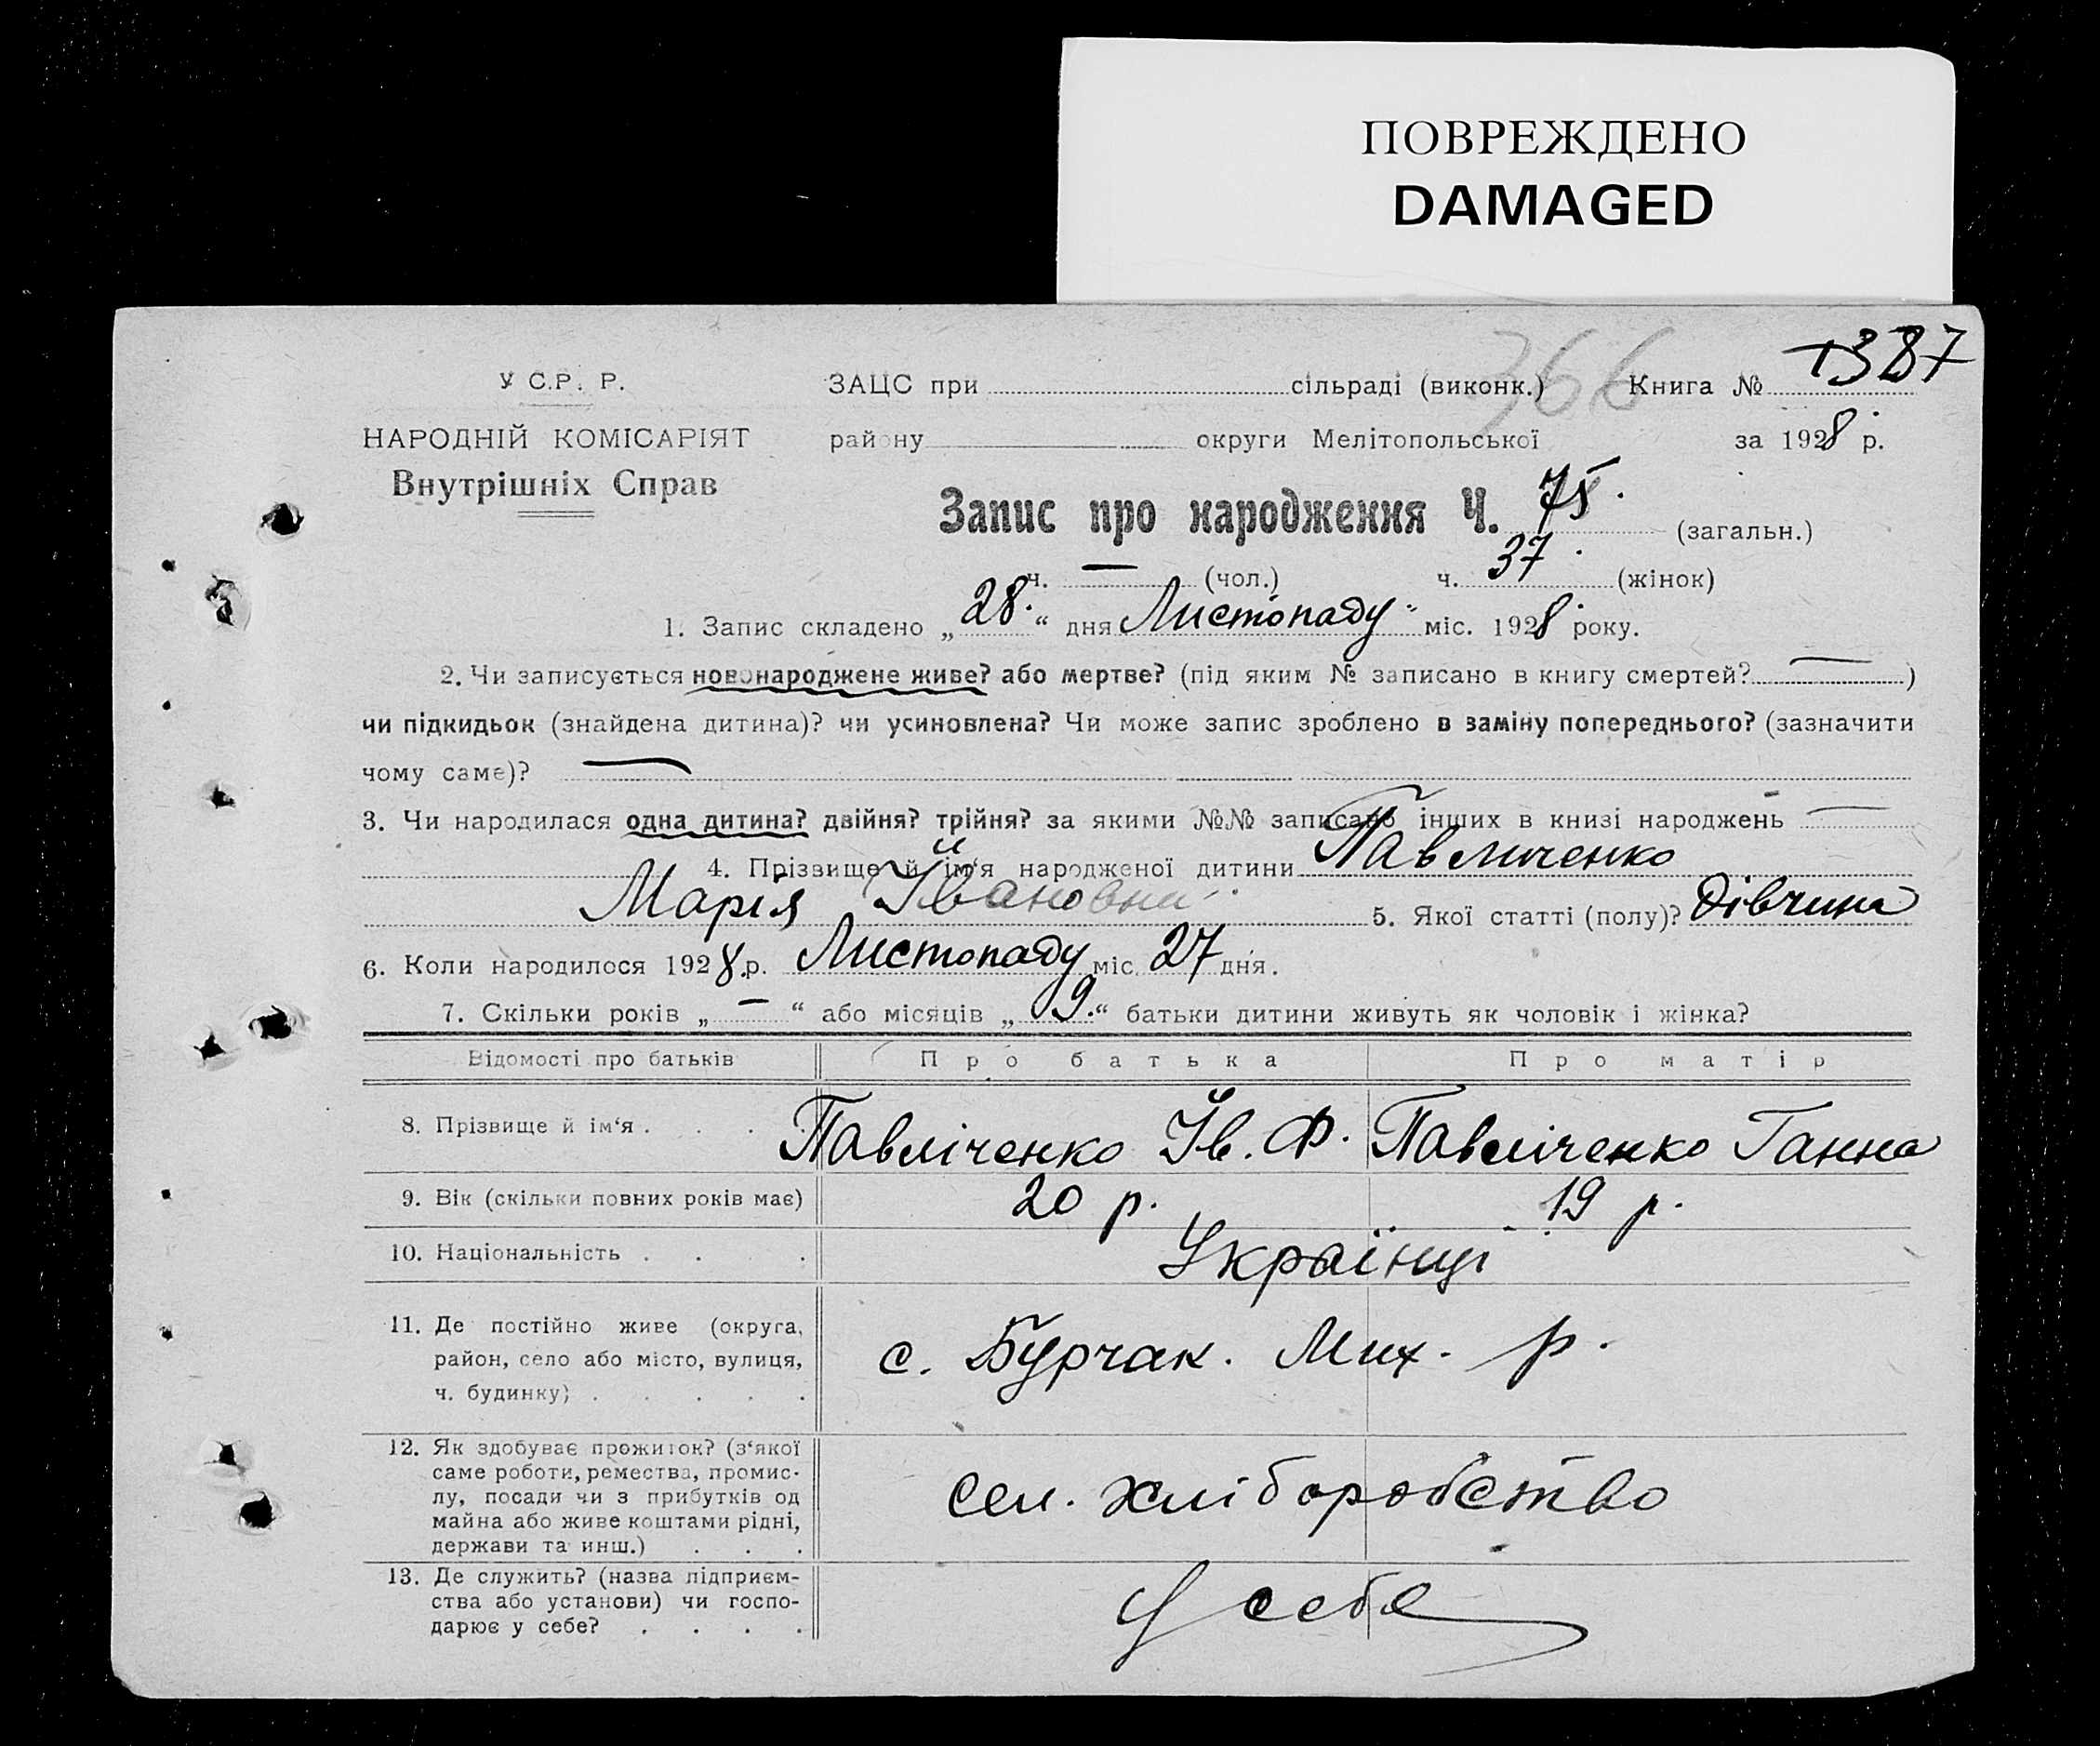 ПОВРЕЖДЕНО
DAMAGED
366
У С.Р. Р.
ЗАЦС при сільраді (виконк.) Книга № 1387
НАРОДНІЙ КОМІСАРІЯТ
району округи Мелітопольської за 1928 р.
Внутрішніх Справ
Запис про народження Ч. 75. (загальн.)
ч. — (чол.) ч. 37. (жінок)
1. Запис складено „28.“ дня Листопаду міс. 1928 року.
2. Чи записується новонароджене живе? або мертве? (під яким № записано в книгу смертей? — )
чи підкидьок (знайдена дитина)? чи усиновлена? Чи може запис зроблено в заміну попереднього? (зазначити
чому саме)? —
3. Чи народилася одна дитина? двійня? трійня? за якими №№ записано інших в книзі народжень —
4. Прізвище й ім‘я народженої дитини Павличенко
Марія Йвановна 5. Якої статті (полу)? Дівчина
6. Коли народилося 1928 р. Листопаду міс. 27 дня.
7. Скільки років „ — “ або місяців „ 9. “ батьки дитини живуть як чоловік і жінка?
Відомості про батьків Про батька Про матір
8. Прізвище й ім‘я . . . . Павліченко Йв. Ф. Павліченко Ганна
9. Вік (скільки повних років має) 20 р. 19 р.
10. Національність . . . Українці
11. Де постійно живе (округа,
район, село або місто, вулиця,
ч. будинку) . . . . .
с. Бурчак. Мих. р.
12. Як здобуває прожиток? (з‘якої
саме роботи, ремества, промис-
лу, посади чи з прибутків од
майна або живе коштами рідні,
держави та инш.) . . .
Сел. хліборобство
13. Де служить? (назва підприєм-
ства або установи) чи госпо-
дарює у себе? . . . .
У себе